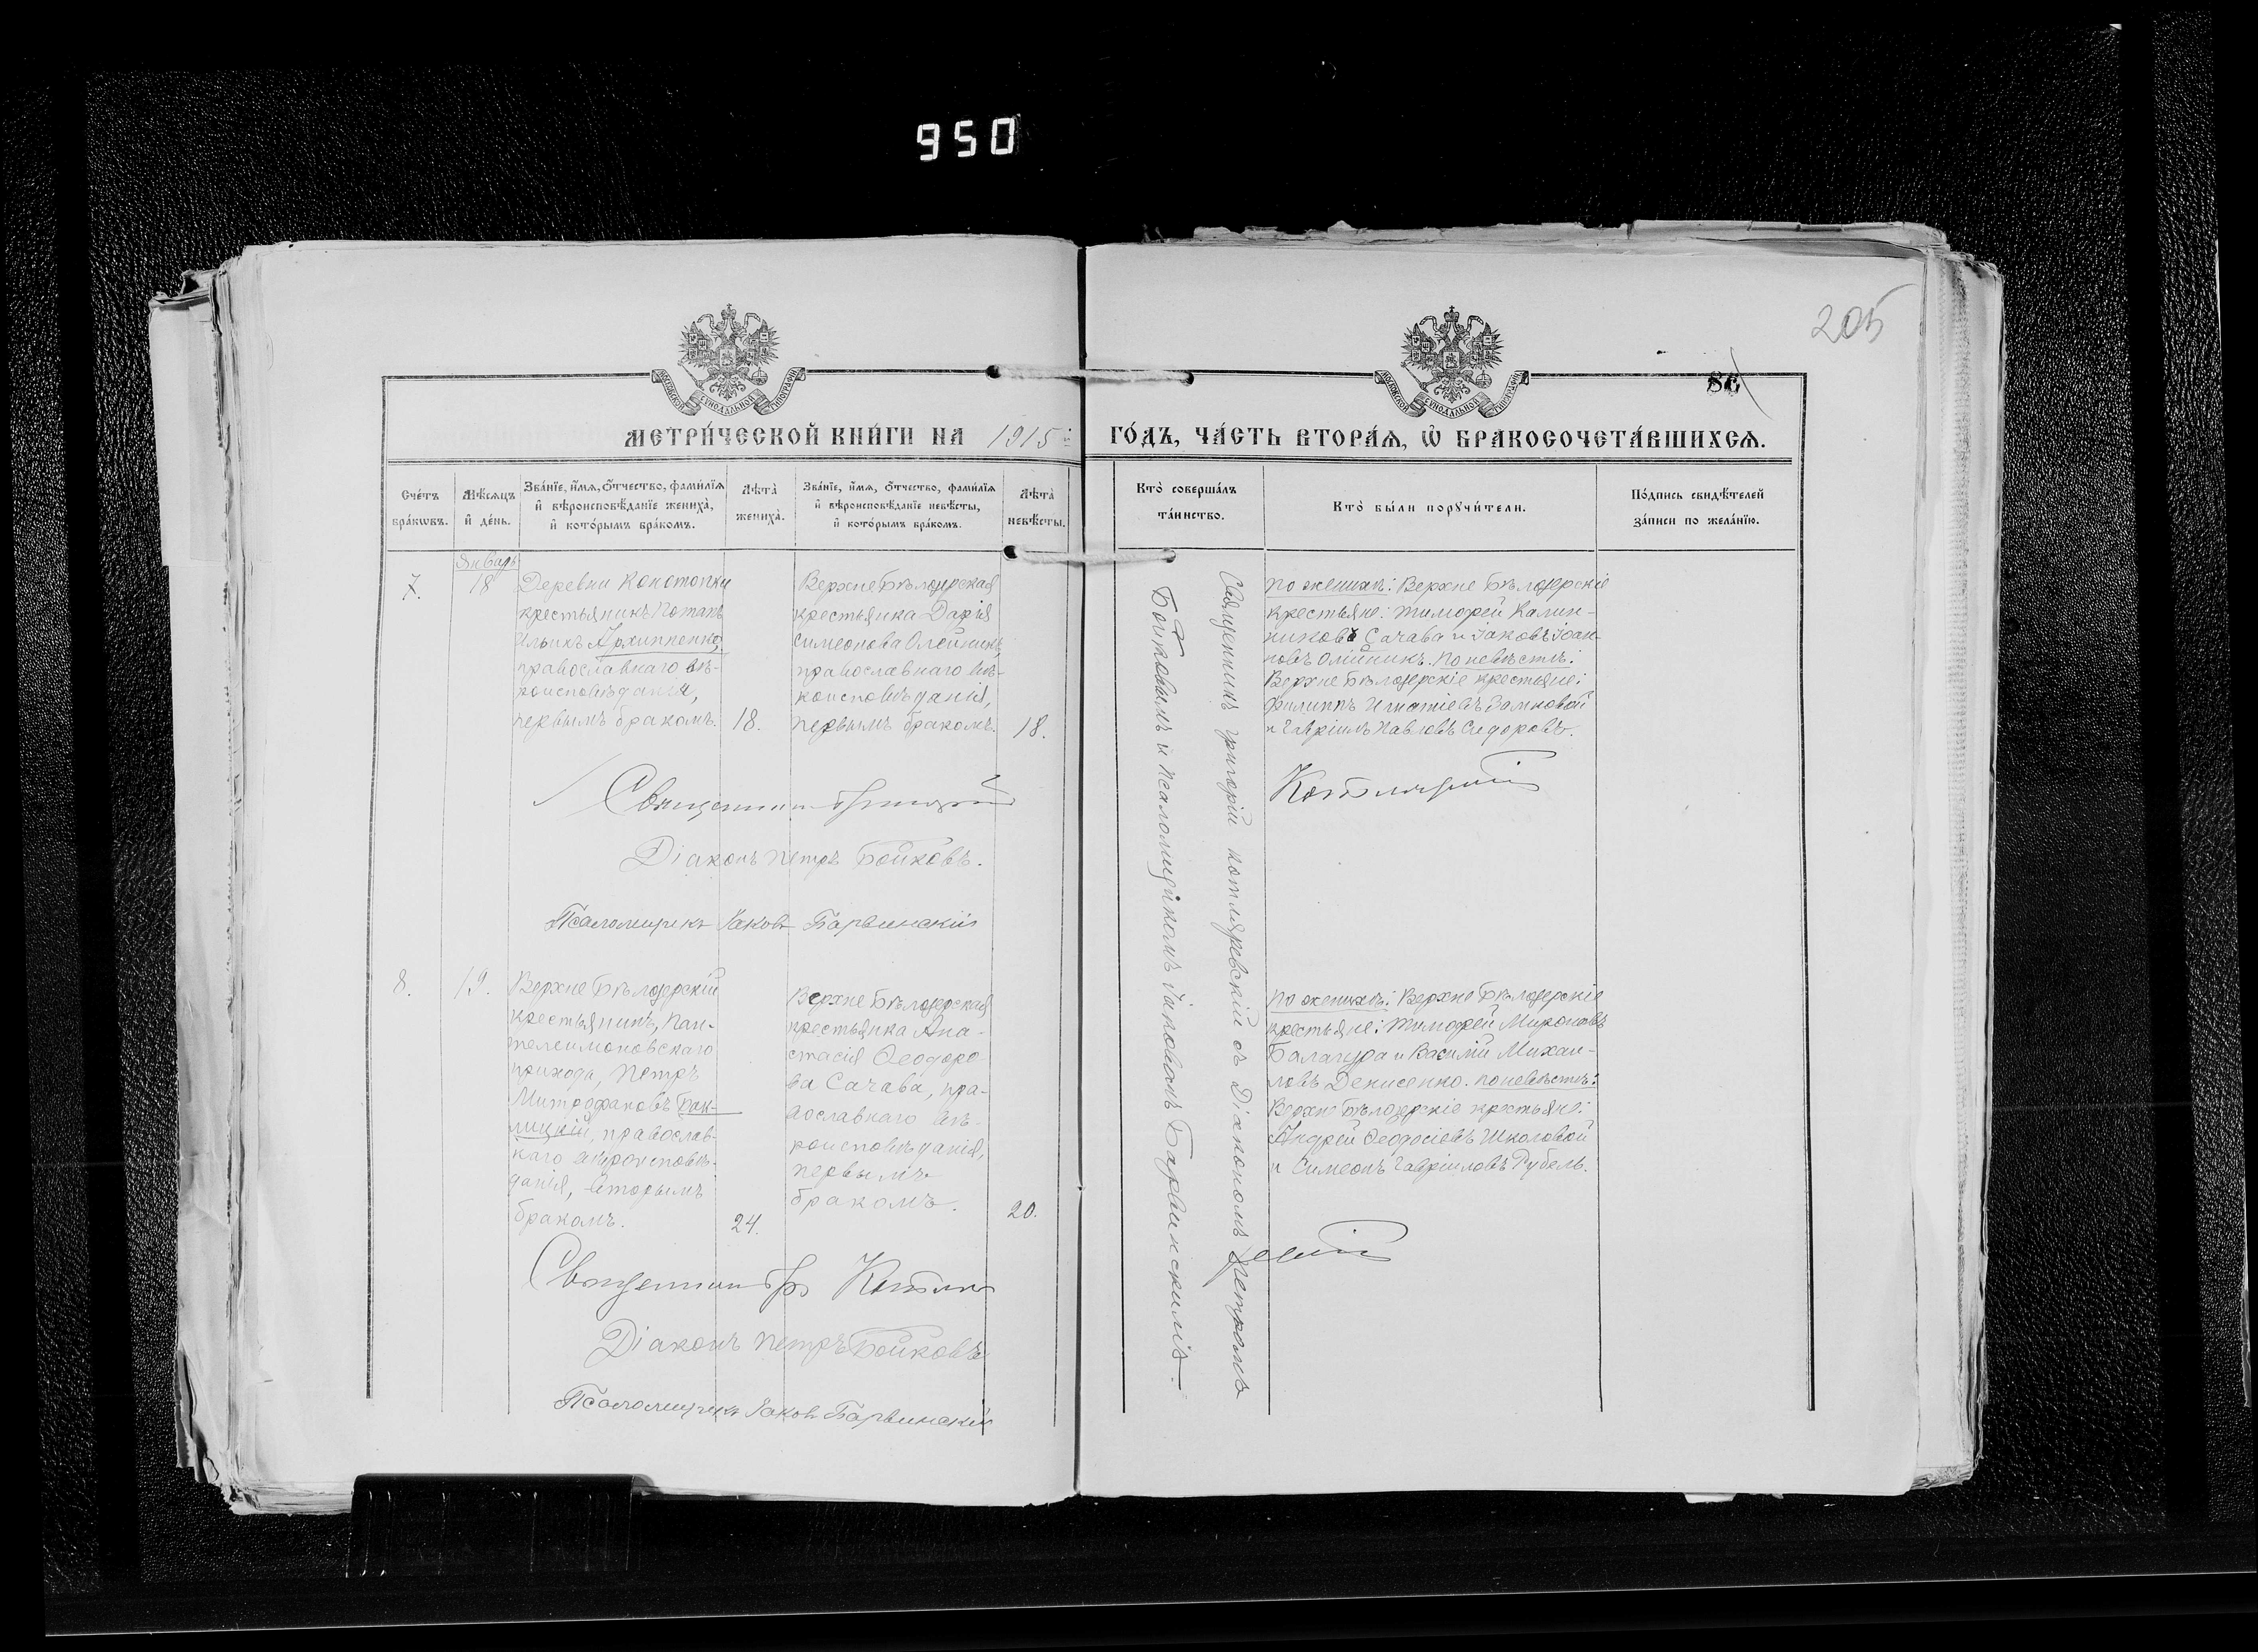 950
205
МОСКОВСКОЙ СѴНОДАЛЬНОЙ ТИПОГРАФІИ
МОСКОВСКОЙ СѴНОДАЛЬНОЙ ТИПОГРАФІИ
МЕТРИ́ЧЕСКОЙ КНИ́ГИ НА 1915
ГО́ДЪ, ЧА́СТЬ ВТОРА́Ѧ, Ѡ҆ БРАКОСОЧЕТА́ВШИХСѦ.
Сче́тъ
бра́кѡвъ.
Мѣ́сѧцъ
и҆ де́нь.
Зва́нїе, и҆́мѧ, ѻ҆́тчество, фами́лїѧ
и҆ вѣроисповѣ́данїе жениха̀,
и҆ кото́рымъ бра́комъ.
Лѣ́та̀
жениха̀.
Зва́нїе, и҆́мѧ, ѻ҆́тчество, фами́лїѧ
и҆ вѣроисповѣ́данїе невѣ́сты,
и҆ кото́рымъ бра́комъ.
Лѣ́та̀
невѣ́сты.
Кто̀ соверша́лъ
та́инство.
Кто̀ бы́ли порꙋчи́тели.
По́дпись свидѣ́телей
за́писи по жела́нїю.
Январь
7.
18
Деревни Конотопки
крестьянинъ Потапъ
Ильинъ Архиппенко,
православнаго вѣ-
роисповѣданія,
первымъ бракомъ.
18.
Верхне Бѣлозерская
крестьянка Дарія
Симеонова Олейникъ,
православнаго вѣ-
роисповѣданія,
первымъ бракомъ.
18.
Священникъ Григорій Котляревскій съ Діакономъ Петромъ
Бойковымъ и псаломщикомъ Іаковомъ Барвинскимъ.
По женихѣ: Верхне Бѣлозерскіе
крестьяне: Тимофей Калин-
никовъ Сачава и Іаковъ Іоан-
новъ Олійникъ. По невѣстѣ:
Верхне Бѣлозерскіе крестьяне:
Филиппъ Игнатіевъ Замковой
и Гавріилъ Павловъ Сидоровъ.
Священникъ Григорій Котляревскій
Діаконъ Петръ Бойковъ.
Псаломщикъ Іаковъ Барвинскій
8.
19.
Верхне Бѣлозерскій
крестьянинъ, Пан-
телеимоновскаго
прихода, Петръ
Митрофановъ Бак-
лицкій, православ-
наго вѣроисповѣ-
данія, вторымъ
бракомъ.
24.
Верхне Бѣлозерская
крестьянка Ана-
стасія Ѳеодоро-
ва Сачава, пра-
вославнаго вѣ-
роисповѣданія,
первымъ
бракомъ.
20.
По женихѣ: Верхне Бѣлозерскіе
крестьяне: Тимофей Мироновъ
Балагура и Василій Михаи-
ловъ Денисенко. По невѣстѣ:
Верхне Бѣлозерскіе крестьяне:
Андрей Ѳеодосіевъ Школовой
и Симеонъ Гавріиловъ Рубель.
Священникъ Гр Котляревскій
Діаконъ Петръ Бойковъ
Псаломщикъ Іаковъ Барвинскій